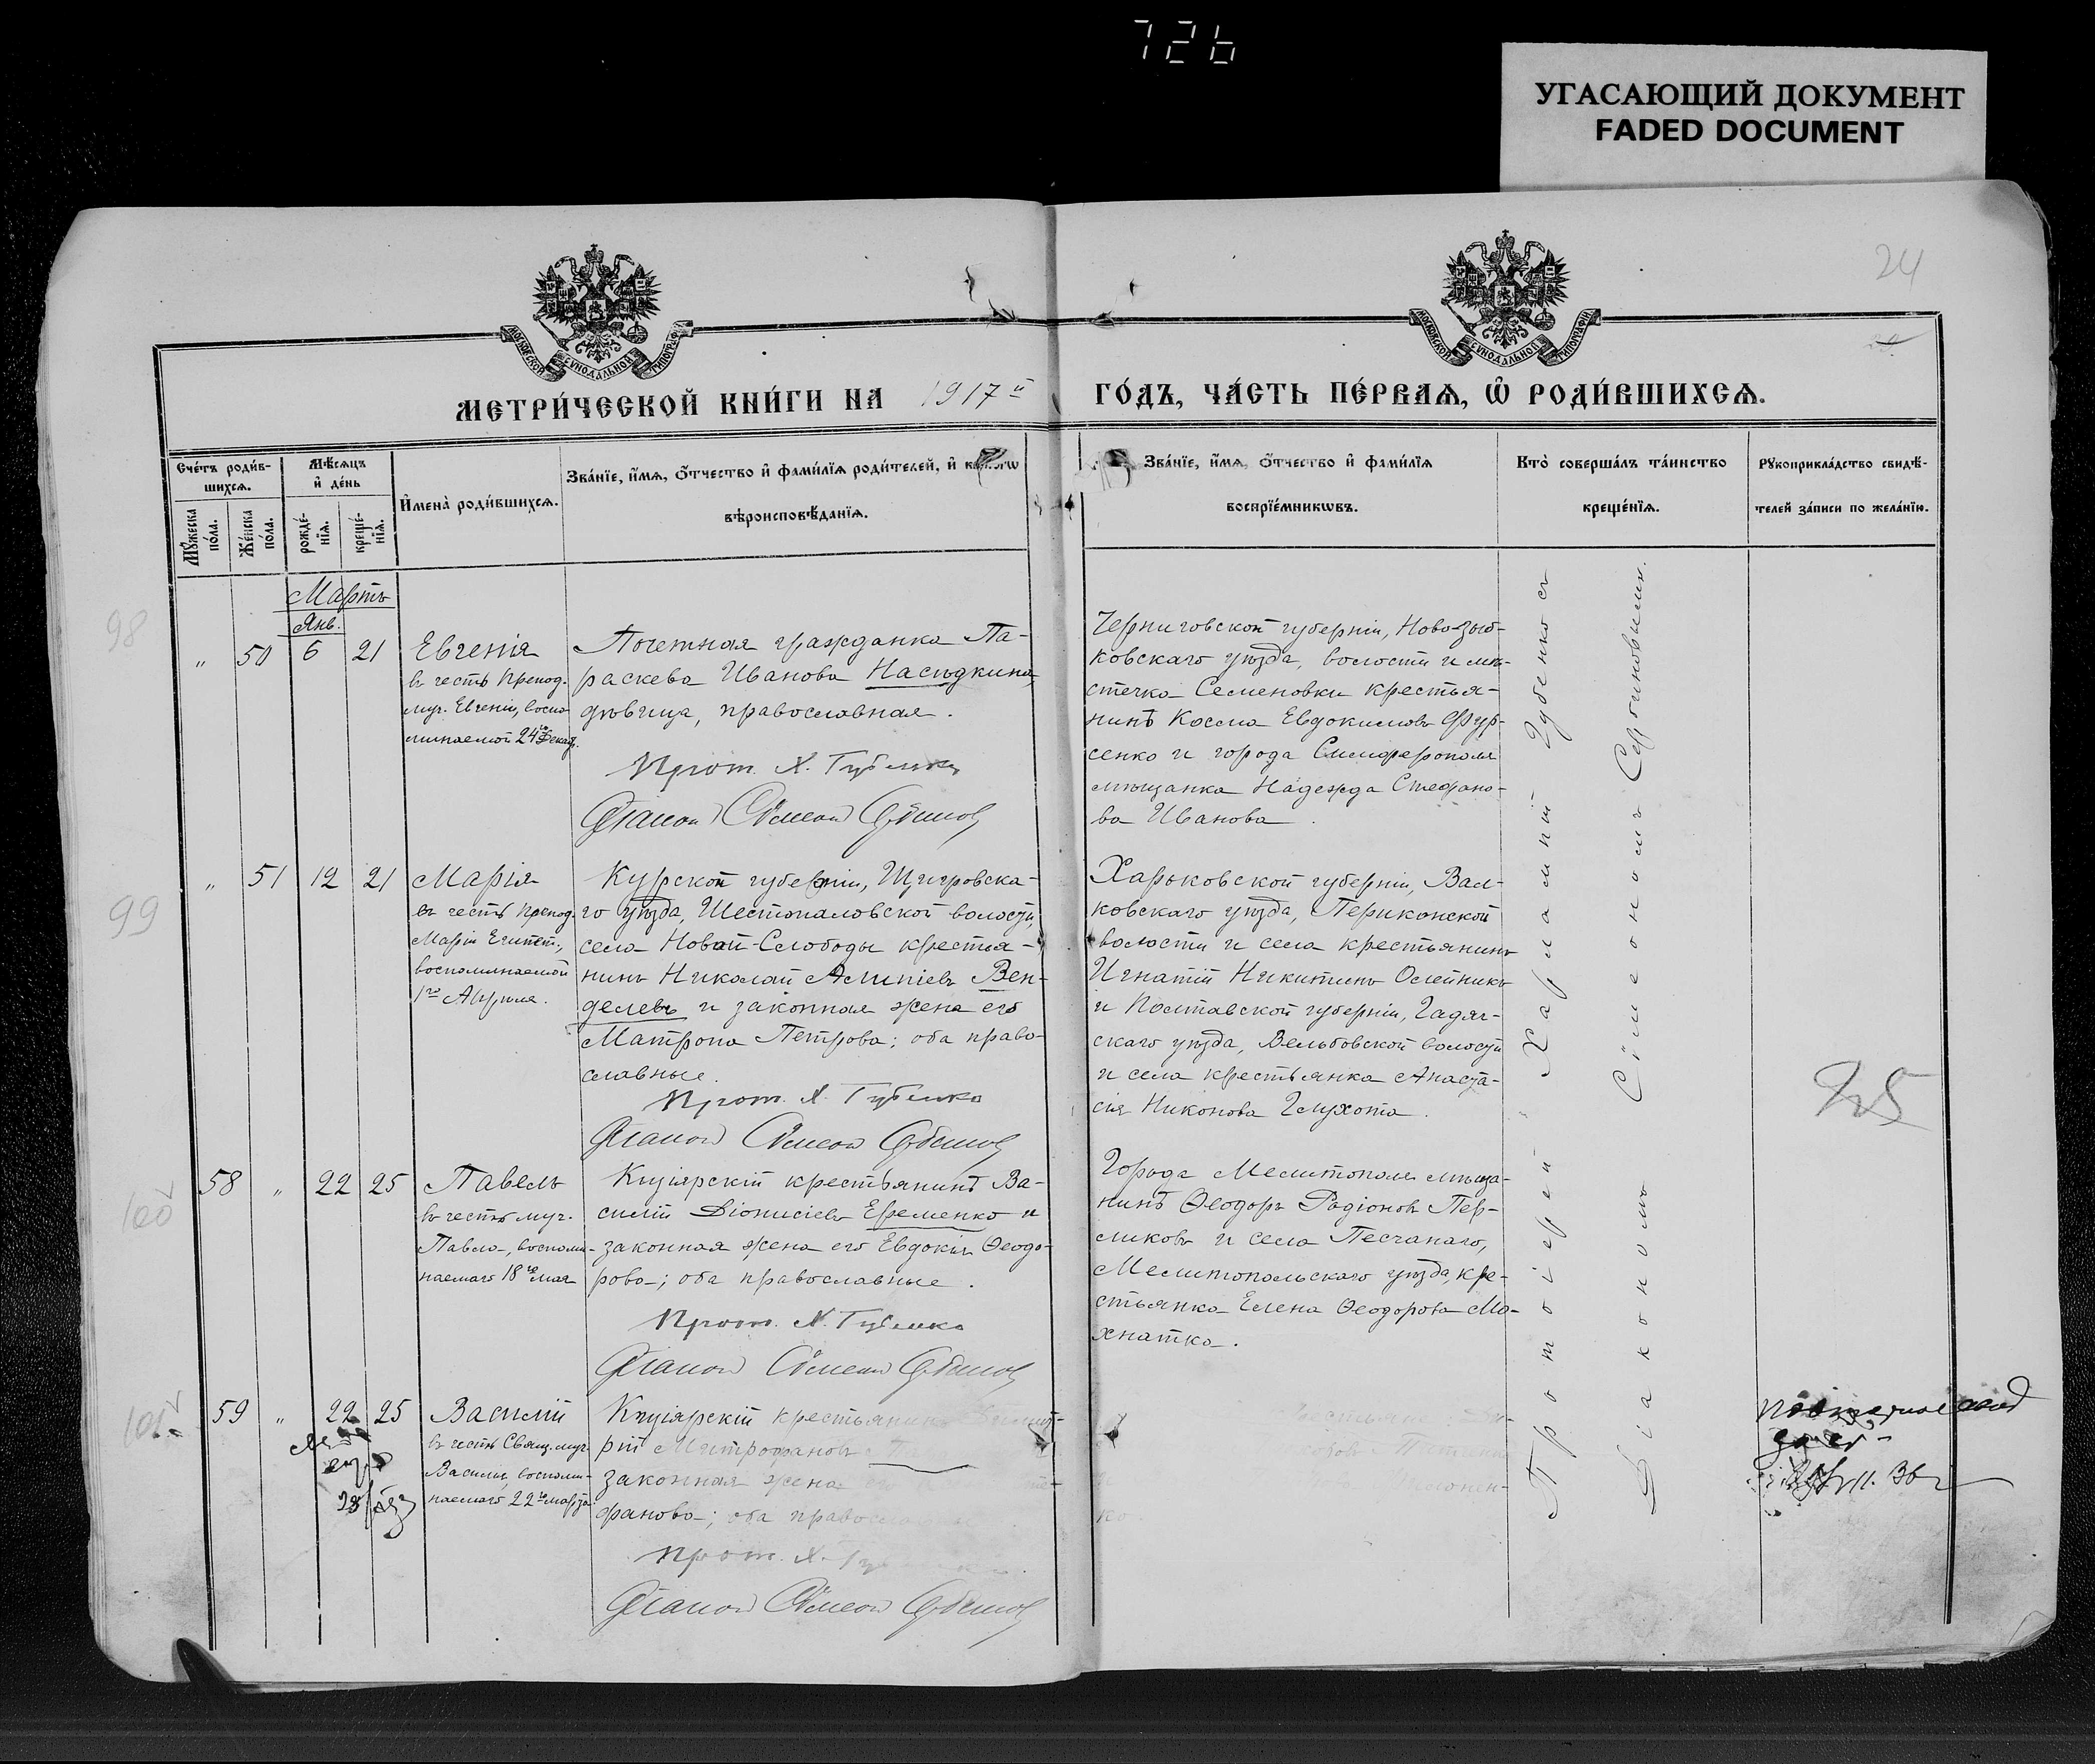 726
УГАСАЮЩИЙ ДОКУМЕНТ
FADED DOCUMENT
24
МОСКОВСКОЙ СѴНОДАЛЬНОЙ ТИПОГРАФІИ
МОСКОВСКОЙ СѴНОДАЛЬНОЙ ТИПОГРАФІИ
МЕТРИ́ЧЕСКОЙ КНИ́ГИ НА 1917й
ГО́ДЪ, ЧА́СТЬ ПЕ́РВАѦ, Ѽ РОДИ́ВШИХСѦ.
Сче́тъ роди́в-
шихсѧ.
Мꙋ́жеска
по́ла.
Же́нска
по́ла.
Мѣ́сѧцъ
и҆ де́нь
рожде́-
нїѧ.
креще́-
нїѧ.
И҆мена̀ роди́вшихсѧ.
Зва́нїе, и҆́мѧ, ѻ҆́тчество и҆ фами́лїѧ роди́телей, и҆
вѣроисповѣ́данїѧ.
Зва́нїе, и҆́мѧ, ѻ҆́тчество и҆ фами́лїѧ
воспрїе́мникѡвъ.
Кто̀ соверша́лъ та́инство
креще́нїѧ.
Рꙋкоприкла́дство свидѣ́-
телей за́писи по жела́нїю.
Мартъ
Янв.
98
" 50 6 21
Евгенія
въ честь препод.
муч. Евгеніи, воспо-
минаемой 24го Декаб.
Почетная гражданка Па-
раскева Иванова Насѣдкина,
дѣвица, православная.
Прот. Х. Губенко
Діакон Сімеон
Черниговской губерніи, Ново-зыб-
ковскаго уѣзда, волости и мѣ-
стечка Семеновки крестья-
нинъ Косма Евдокимовъ Фур-
сенко и города Симферополя
мѣщанка Надежда Стефано-
ва Иванова.
99
" 51 12 21
Марія
въ честь препод.
Маріи Египет.,
воспоминаемой
1го Апрѣля.
Курской губерніи, Щигровска-
го уѣзда, Шестопаловской волости,
села Новой-Слободы крестья-
нинъ Николай Алипіевъ Вен-
делевъ и законная жена его
Матрона Петрова; оба право-
славные.
Прот. Х. Губенко
Діакон Сімеон
Харьковской губерніи, Вал-
ковскаго уѣзда, Перекопской
волости и села крестьянинъ
Игнатій Никитинъ Олейникъ
и Полтавской губерніи, Гадяч-
скаго уѣзда, Вельбовской волости
и села крестьянка Анаста-
сія Никонова Глухота.
100
58 " 22 25
Павелъ
въ честь муч.
Павла, воспоми-
наемаго 18го мая
Кизіярскій крестьянинъ Ва-
силій Діонисіевъ Еременко и
законная жена его Евдокія Ѳеодо-
рова; оба православные.
Прот. Х. Губенко
Діакон Сімеон
Города Мелитополя мѣща-
нинъ Ѳеодоръ Радіоновъ Пер-
ликовъ и села Песчанаго,
Мелитопольскаго уѣзда, кре-
стьянка Елена Ѳеодорова Ма-
хнатка.
101
59 " 22 25
Василій
въ честь Свящ. муч.
Василія, воспоми-
наемаго 22го марта.
Кизіярскій крестьянинъ
рій Митрофановъ
законная жена
фанова; оба православные
Прот. Х.
Діакон Сімеон
Протоіерей Харлампій Губенко съ
Діакономъ Сімеономъ
25